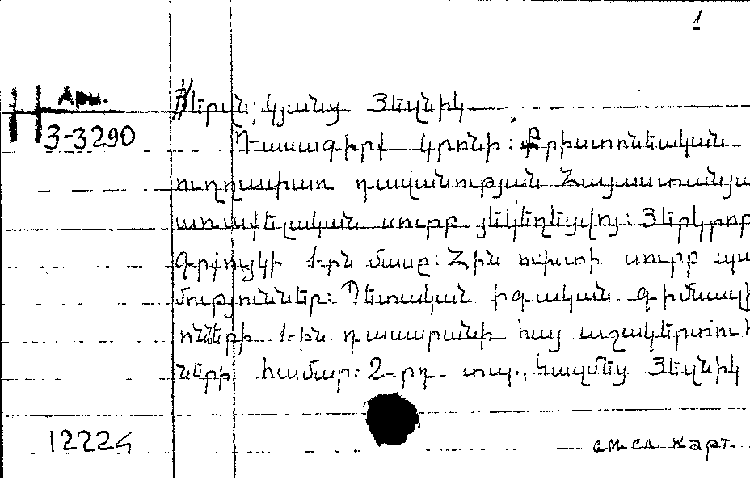 1
Арм.
3-3290
Տերյան, կյանք Յեզնիկ
Դասագիրք կրոնի: Քրիստոնեական
ուղղափառ դավանության Հայաստանյա
առաքելական սուրբ յեկեղեցվո: Յերկրորդ
գրքույկի 1-ին մասը: Հին ուխտի սուրբ պա
մություններ: Պետական իգական գիմնազի
ոնների 1-ին դասարանի հայ աշակերտուհի
ների համար: 2-րդ տպ., կազմեց Յեզնիկ
12224
см. сл. карт.